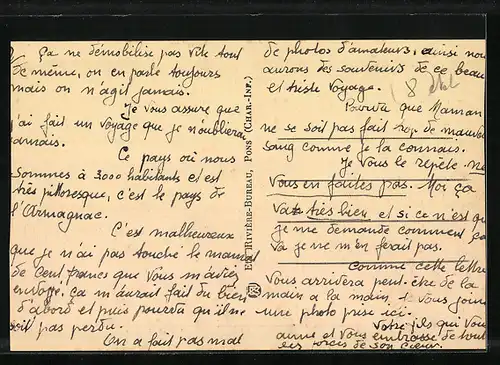 2) Ça ne démobilise pas vite tout
de même, on en parle toujours
mais on n'agit jamais.
Je vous assure que
j'ai fait un voyage que je n'oublierai
jamais.
Ce pays où nous
sommes à 3000 habitants et est
très pittoresque, c'est le pays de
l'Armagnac.
C'est malheureux
que je n'ai pas touché le mandat
de cent francs que vous m'aviez
envoyé, ça m'aurait fait du bien
d'abord et puis pourvu qu'il ne
soit pas perdu.
On a fait pas mal
EDIT. RIVIÈRE-BUREAU, PONS (CHAR.-INF.)
de photos d'amateurs, ainsi nous
aurons des souvenirs de ce beau
et triste voyage.
Pourvu que Maman
ne se soit pas fait trop de mauvais
sang comme je la connais.
Je vous le répète ne
vous en faites pas. Moi ça
va très bien et si ce n'est que
je me demande comment ça
va je ne m'en ferai pas.
Comme cette lettre
vous arrivera peut-être de la
main à la main, je vous joins
une photo prise ici.
Votre fils qui vous
aime et vous embrasse de tout
son cœur.